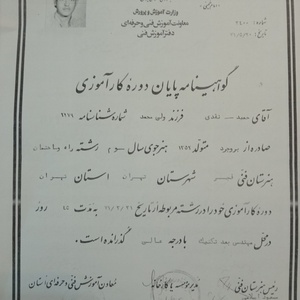 وزارت آموزش و پرورش
معاونت آموزش فنی و حرفه‌ای
دفتر آموزش فنی
شماره ۲۴۰۰
تاریخ
گواهینامه پایان دوره کارآموزی
آقای مجید فرزند ولی محمد شماره شناسنامه ۲۲۷۹
صادره از بروجرد متولد ۱۳۵۲ هنرجوی سال سوم رشته راه و ساختمان
هنرستان فنی شهرستان تهران استان تهران
دوره کارآموزی خود را در رشته مربوطه از تاریخ ۷۱/۲/۲۱ به مدت ۴۵ روز
در محل با درجه عالی گذرانده است.
رئیس هنرستان فنی
مدیر موسسه یا کارخانه
معاون آموزش فنی و حرفه‌ای استان